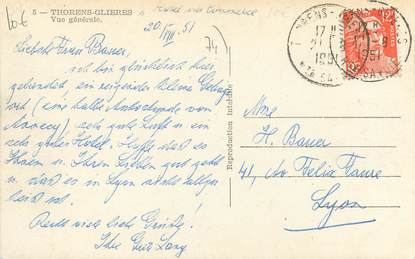 10€
5 - THORENS-GLIERES
Vue générale.
20. VIII. 51
74
Liebste Frau Bauer,
ich bin glücklich hier
ein reizender kleiner Gebirgs
ort (eine halbe Autostunde von
Annecy) sehr gute Luft u ein
sehr gutes Hotel. Hoffe daß es
Ihnen u Ihren Lieben gut geht
u. daß es in Lyon nicht allzu
heiß ist.
Recht viele liebe Grüße,
Ihre
Reproduction interdite
THORENS-GLIERES
17 H
21
1951
Mme
H. Bauer
41, Av. Felix Faure
Lyon